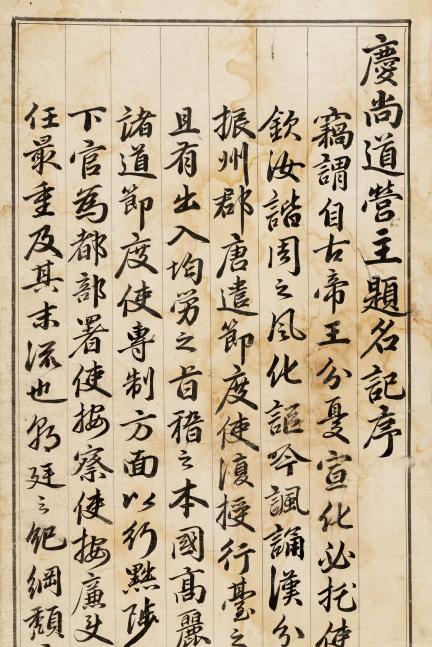 慶尚道營主題名記序
竊謂自古帝王分憂宣化必托使
欽汝諧周之風化謳吟諷誦漢分
振州郡唐遣節度使復授行臺之
且有出入均勞之旨稽之本國高麗
諸道節度使專制方面以行黜陟
下官為都部署使按察使按廉
任最重及其末流也朝廷之紀綱頹